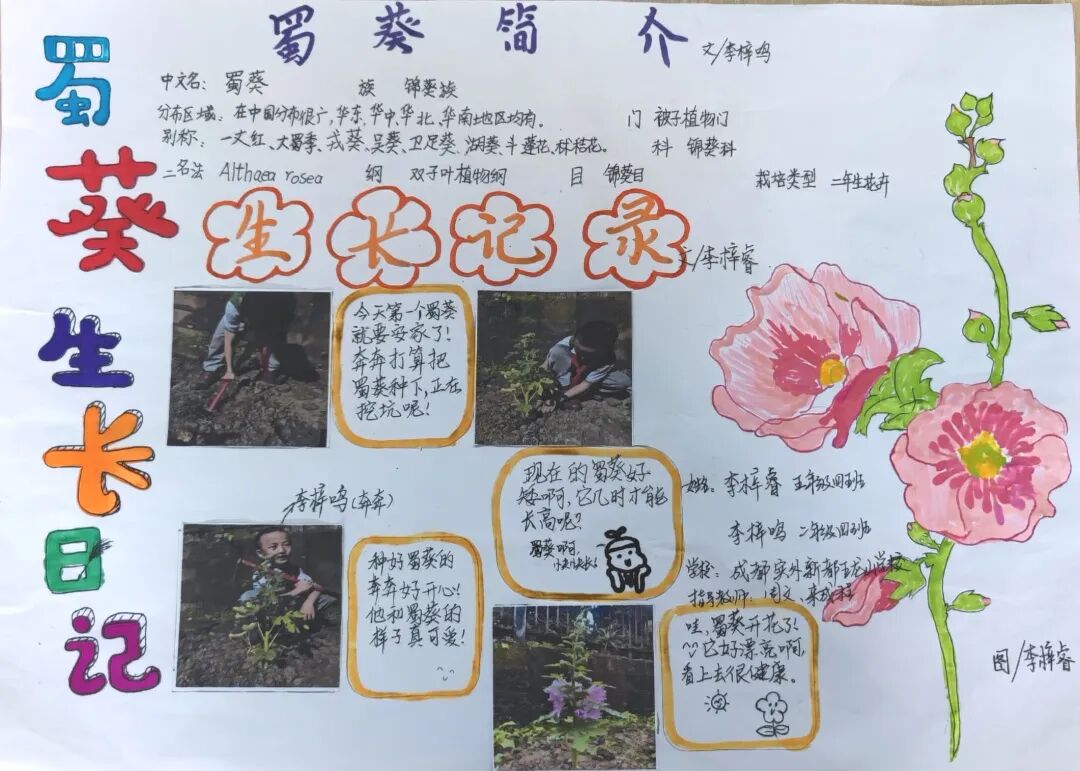 蜀葵生长日记
蜀葵简介 文/李梓鸣
中文名：蜀葵 族 锦葵族
分布区域：在中国分布很广，华东、华中、华北、华南地区均有。 门 被子植物门
别称：一丈红、大蜀季、戎葵、吴葵、卫足葵、胡葵、斗蓬花、秫秸花。 科 锦葵科
二名法 Althaea rosea 纲 双子叶植物纲 目 锦葵目 栽培类型 二年生花卉
生长记录 文/李梓睿
今天第一个蜀葵
就要安家了！
奔奔打算把
蜀葵种下，正在
挖坑呢！
李梓鸣(奔奔)
种好蜀葵的
奔奔好开心！
他和蜀葵的
样子真可爱！
现在的蜀葵好
矮啊，它几时才能
长高呢？
蜀葵啊，
哇，蜀葵开花了！
它好漂亮啊，
看上去很健康。
姓名：李梓睿 五年级四班
李梓鸣 二年级四班
学校：成都实外新都五龙山学校
指导教师：
图/李梓睿